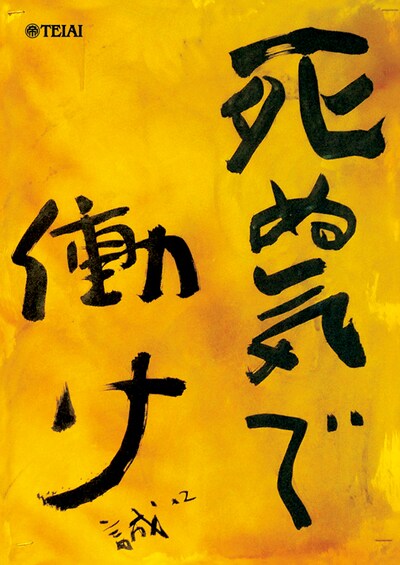 帝 TEIAI
死ぬ気で
働け
誠